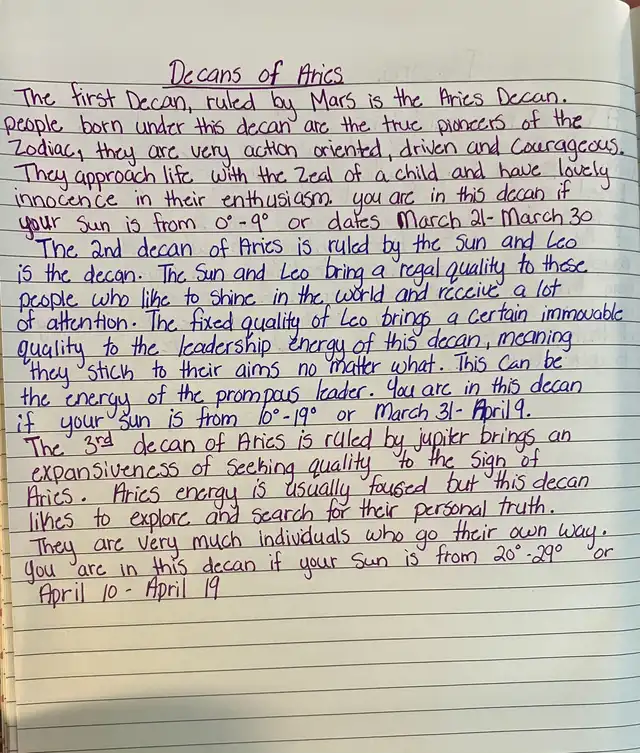 Decans of Aries
The first Decan, ruled by Mars is the Aries Decan.
people born under this decan are the true pioneers of the
Zodiac, they are very action oriented, driven and Courageous.
They approach life with the Zeal of a child and have lovely
innocence in their enthusiasm. you are in this decan if
your Sun is from 0°-9° or dates March 21-March 30
The 2nd decan of Aries is ruled by the Sun and Leo
is the decan. The Sun and Leo bring a regal quality to these
people who like to shine in the world and receive a lot
of attention. The fixed quality of Leo brings a certain immovable
quality to the leadership energy of this decan, meaning
they stick to their aims no matter what. This can be
the energy of the prompous leader. You are in this decan
if your Sun is from 10°-19° or March 31- April 9.
The 3rd decan of Aries is ruled by jupiter brings an
expansiveness of seeking quality to the sign of
Aries. Aries energy is usually foused but this decan
likes to explore and search for their personal truth.
They are very much individuals who go their own way.
You are in this decan if your Sun is from 20°-29° or
April 10 - April 19